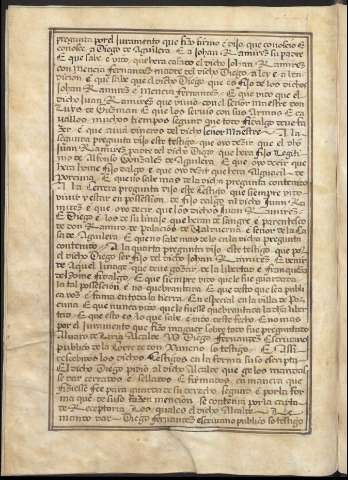 pregunta por el juramento que fizo firmo e dijo que conoscio E
conosce a Diego de Aguilera E a Johan Ramires su padre
E que sabe e vido, que hera casado el dicho Johan Ramires
con mencia Fernandes madre del dicho Diego a ley e a ben
dicion E que sabe que el dicho Diego que es fijo de los dichos
Johan Ramires e mencia Fernandes. E que vido que el
dicho Juan Ramires que vivio con el señor maestre don
Luis de Gusman E que los servio con sus Armas E ca
vallos muchos tiempos segund que todo fidalgo deve fa
zer e que avia dineros del dicho señor Maestre A la
segunda pregunta dijo este testigo que oyo desir que el dho
Juan Ramires padre del dicho Diego que hera fijo Legiti
mo de Alfonso Gonzales de Aguilera E que oyo desir que
hera home fijo dalgo e que oyo desir que hera Alguacil de
porcuna E que no sabe mas de la dicha pregunta contenido
A la tercera pregunta dijo este testigo que siempre vido
vivir y estar en possession de fijo dalgo al dicho Juan Ra
mires e que oyo decir que los dichos Juan Ramires
E Diego e los de su linaje que heran de sangre e parentesco
de don Ramiro de Palacios de Valduerna e señor de la Ca
sa de Aguilera E que no sabe mas de lo en la dicha pregunta
contenido A la quarta pregunta dijo este testigo que por
el dicho Diego ser fijo del dicho Johan Ramires E venir
de Aquel linaje que deve gozar de la libertad e franqueza
del home fidalgo E que siempre vido que le fue guardada
la tal possession e no quebrantada E que desto que sea publi
ca voz e fama en toda la tierra En especial en la villa de Por
cuna E que nunca vido que le fuesse quebrantada la dha liber
tad E que esto es lo que sabe e vido deste fecho E no mas
por el Juramento que fizo maguer sobre todo fue preguntado
Alvaro de Alcalde Yo Diego Fernandes Escrivano
publico de la Torre de don Ximeno so testigo E Assi
rescebidos los dichos testigos en la forma suso escripta
El dicho Diego pidio al dicho Alcalde que ge los mandas
se dar cerrados e sellados E firmados, en manera que
fiziesse fee para guarda de su derecho segund e por la for
ma que de suso fazen mencion se contenia por la carta
de Receptoria Los quales el dicho Alcalde
mando dar Diego Fernandes escrivano publico so testigo